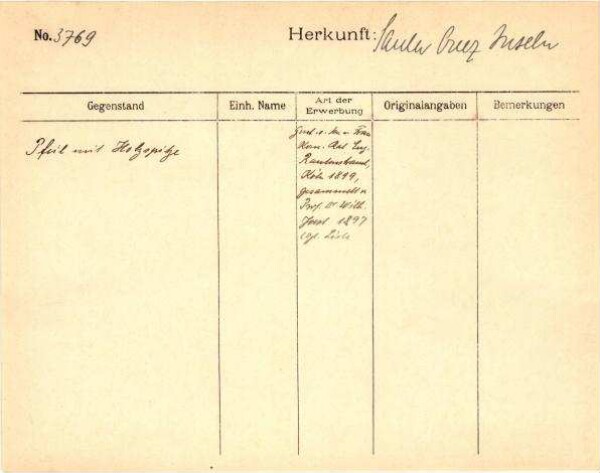 No. 3769 Herkunft: Santa Cruz Inseln
Gegenstand Einh. Name Art der Erwerbung Originalangaben Bemerkungen
Pfeil mit Holzspitze
Frau
Kom. Rat Eug.
Rautenstrauch,
Köln 1899,
gesammelt v.
Prof. Dr Wilh.
Joest 1897
vgl. Liste